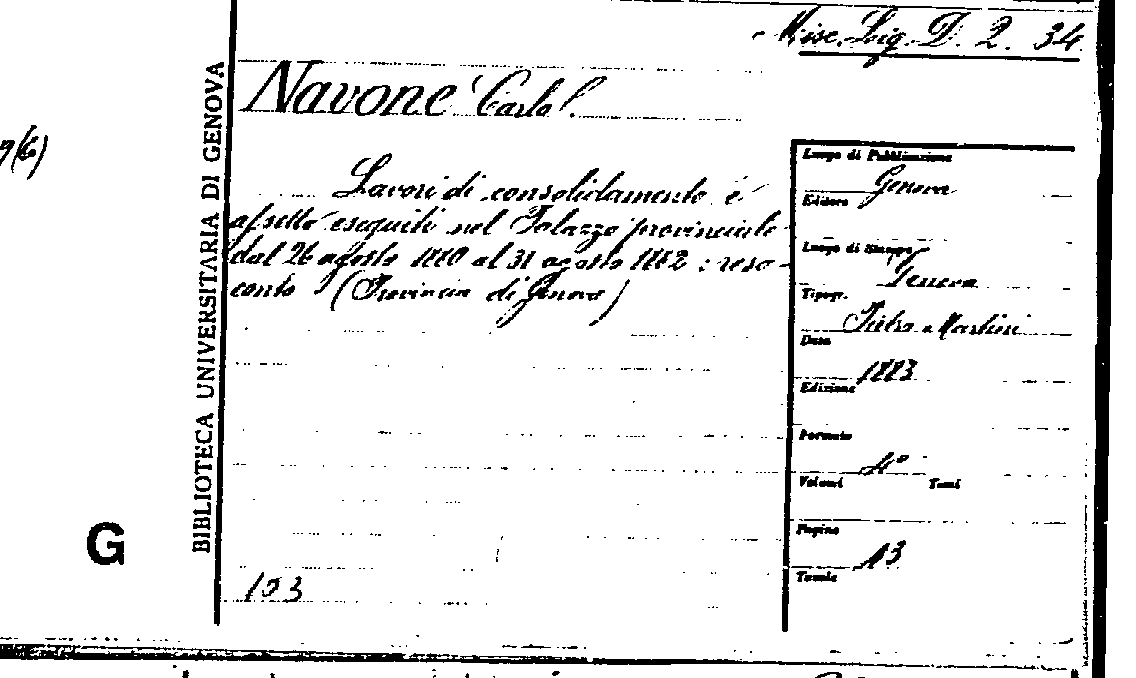 Misc. Lig. D. 2. 34
Navone Carlo.
9(6)
BIBLIOTECA UNIVERSITARIA DI GENOVA
Lavori di consolidamento e
assetto eseguiti nel Palazzo provinciale
dal 26 agosto 1880 al 31 agosto 1882 : reso-
conto (Provincia di Genova)
Luogo di Pubblicazione
Genova
Editore
Luogo di Stampa
Genova
Tipogr.
Pietro Martini
Data
1883
Edizione
Formato
4°
Volumi Tomi
Pagine
13
Tavole
G
153